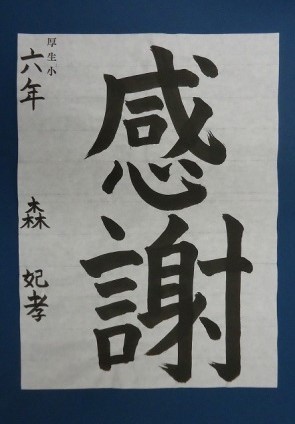 感謝
厚生小
六年 森 妃孝